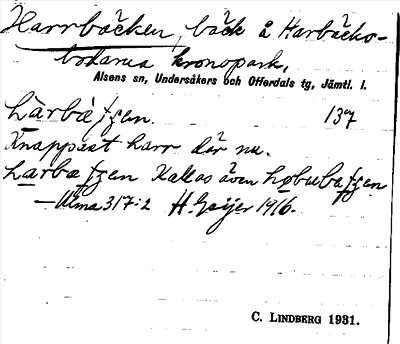 Harrbäcken, bäck å Harbäcks-
bodarna kronopark,
Alsens sn, Undersåkers och Offerdals tg, Jämtl. l.
13
Knappast harr där nu.
Kallas även
— Ulma 317:2 H. Geijer 1916.
C. LINDBERG 1931.